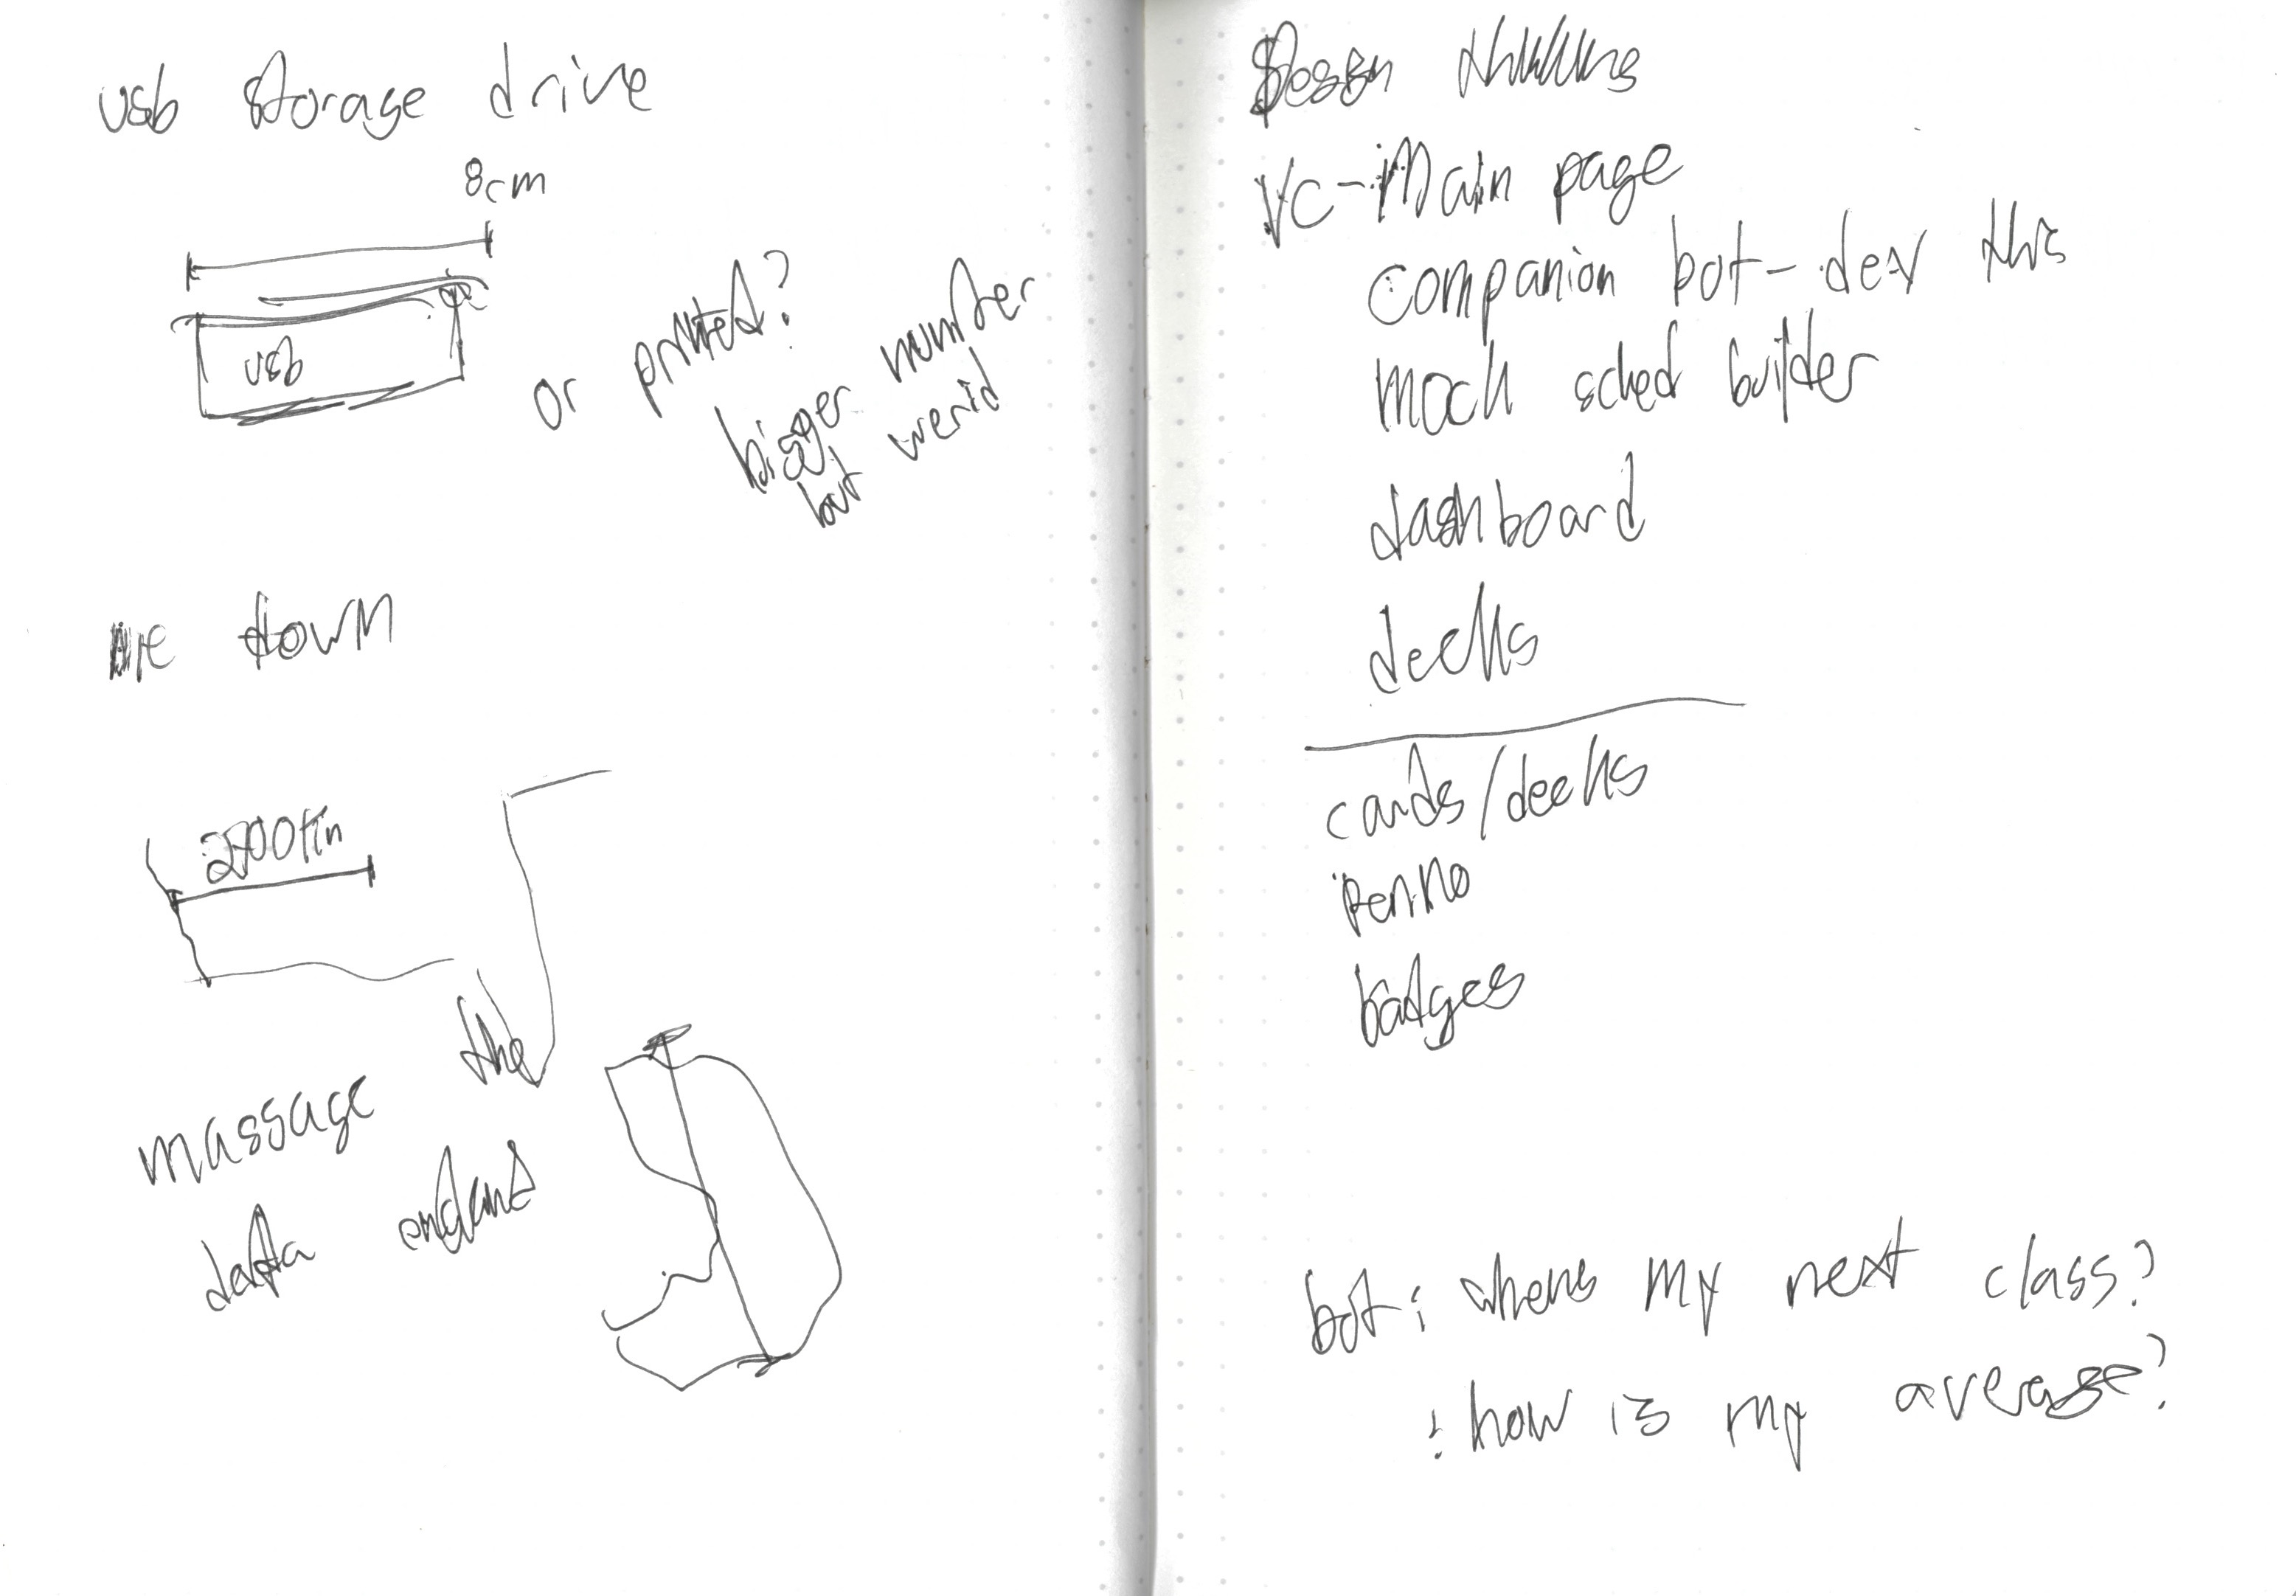 usb storage drive
8cm
usb
or printed?
bigger number
but werid
down
massage the
data
Design thinking
VC-Main page
companion bot - dev this
mock sched builder
dashboard
decks
cards/decks
badges
bot: wheres my next class?
: how is my average?